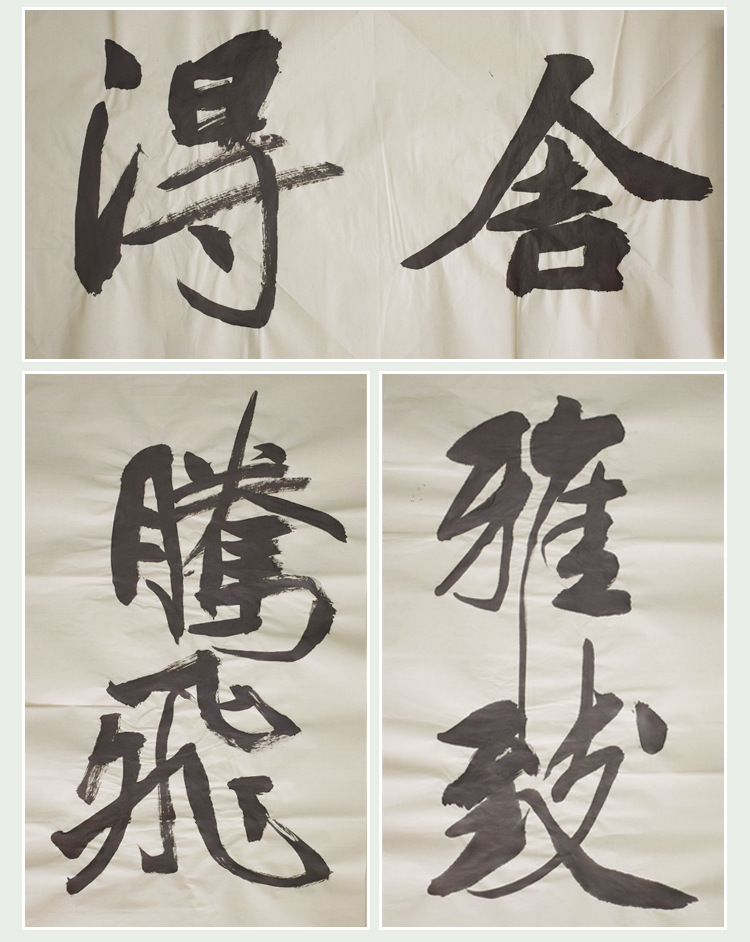 舍得
騰飛
雅致